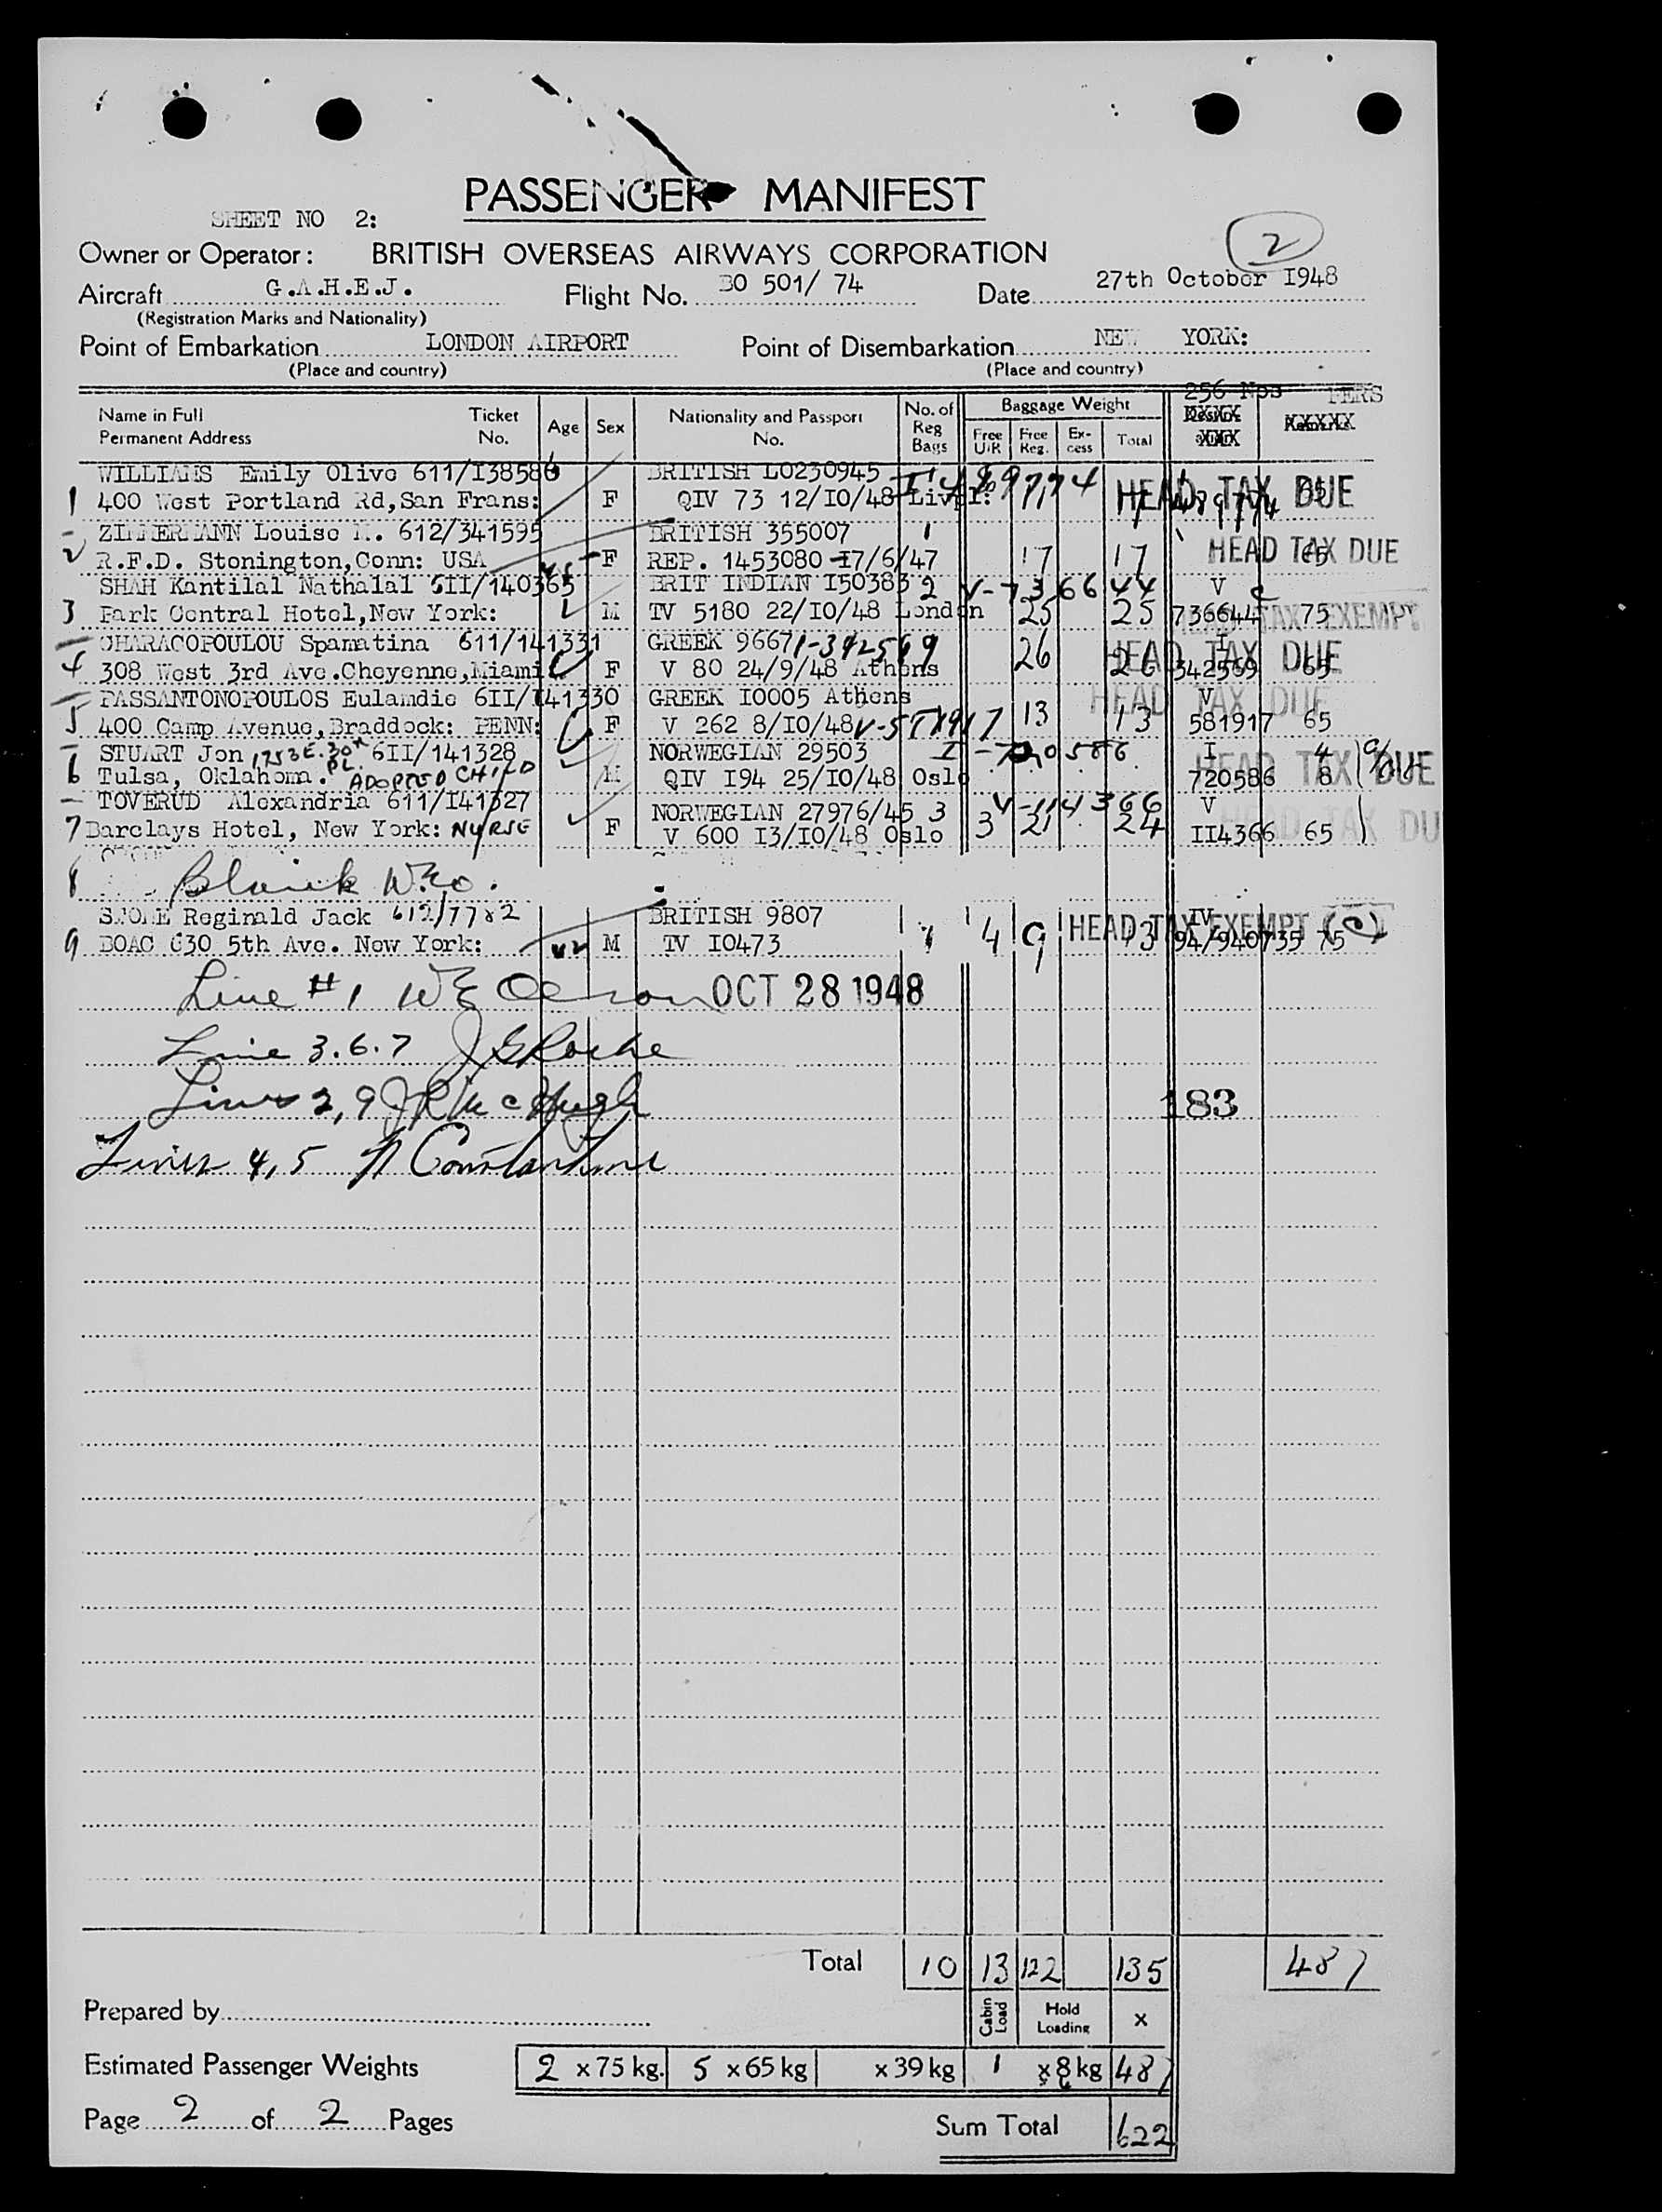 PASSENGER MANIFEST
SHEET NO 2:
2
Owner or Operator: BRITISH OVERSEAS AIRWAYS CORPORATION
Aircraft G.A.H.E.J. Flight No. BO 501/ 74 Date 27th October I948
(Registration Marks and Nationality)
Point of Embarkation LONDON AIRPORT Point of Disembarkation NEW YORK:
(Place and country) (Place and country)
256 Nos PERS
Name in Full Ticket Age Sex Nationality and Passport No. of Baggage Weight
Permanent Address No. No. Reg Bags Free U/R Free Reg. Ex-cess Total
WILLIAMS Emily Olive 611/I38586 BRITISH L0230945
1 400 West Portland Rd, San Frans: F QIV 73 12/IO/48 Livpl: HEAD TAX DUE
ZIMMERMANN Louise M. 612/341595 BRITISH 355007 1
2 R.F.D. Stonington, Conn: USA F REP. 1453080 I7/6/47 17 17 HEAD TAX DUE 65
SHAH Kantilal Nathalal 6II/140365 BRIT INDIAN I50383 2 V-736644 V
3 Park Central Hotel, New York: M TV 5180 22/IO/48 London 25 25 736644 75 HEAD TAX EXEMPT
CHARACOPOULOU Spamatina 611/141331 GREEK 9667 I-342569 I
4 308 West 3rd Ave. Cheyenne, Miami F V 80 24/9/48 Athens 26 26 342569 65 HEAD TAX DUE
PASSANTONOPOULOS Eulamdie 6II/I41330 GREEK I0005 Athens V HEAD TAX DUE
5 400 Camp Avenue, Braddock: PENN: F V 262 8/IO/48 V-581917 13 13 581917 65
STUART Jon 1753 E. 30th PL. 6II/141328 NORWEGIAN 29503 I-720586 I 4
6 Tulsa, Oklahoma. ADOPTED CHILD M QIV I94 25/IO/48 Oslo 720586 8 HEAD TAX DUE
TOVERUD Alexandria 611/I41327 NORWEGIAN 27976/45 3 V-114366 V
7 Barclays Hotel, New York: NURSE F V 600 I3/IO/48 Oslo 3 21 24 II4366 65 HEAD TAX DU
8 Blank
Reginald Jack 612/7782 BRITISH 9807 IV
9 BOAC 630 5th Ave. New York: M TV I0473 4 9 13 94/940735 75 HEAD TAX EXEMPT
Line #1 OCT 28 1948
Line 3.6.7 J G Roche
Lines 2,9 J R McHugh
183
Lines 4,5 N Constantine
Total 10 13 122 135 487
Prepared by Cabin Load Hold Loading x
Estimated Passenger Weights 2 x 75 kg. 5 x 65 kg x 39 kg 1 x 8 kg 487
Page 2 of 2 Pages Sum Total 622